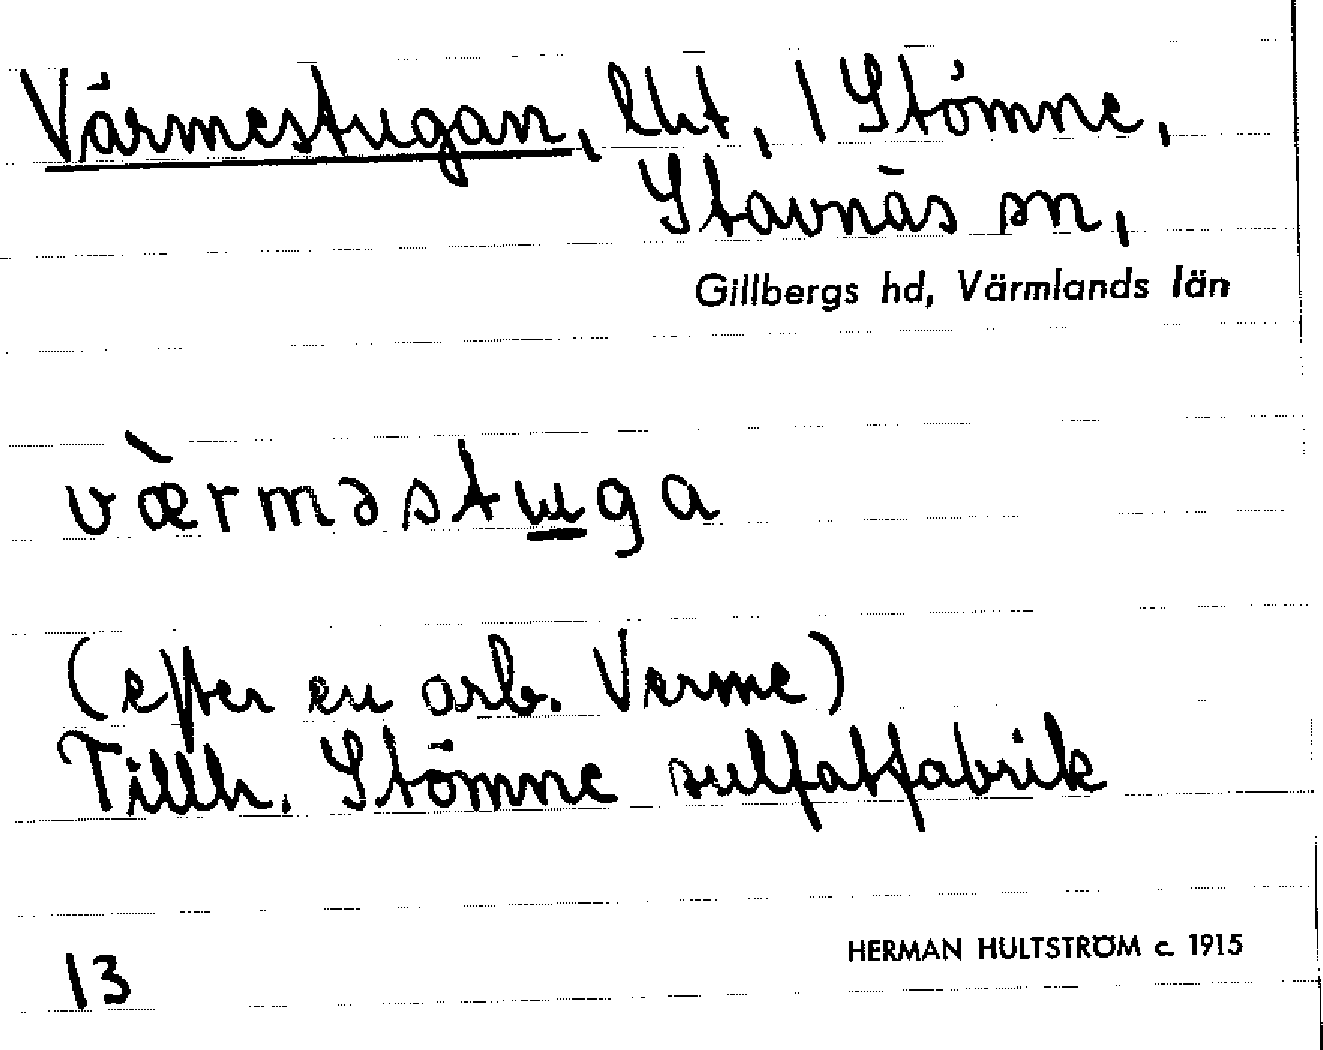 Värmestugan, lht, 1 Stömne,
Stavnäs sn,
Gillbergs hd, Värmlands län
væ̀rməstɯga
(efter en arb. Verme)
Tillh. Stömne sulfatfabrik
HERMAN HULTSTRÖM c. 1915
13